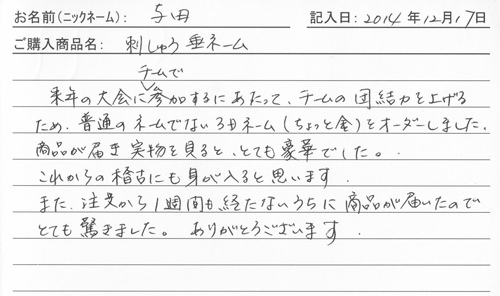 お名前(ニックネーム): 与田 記入日: 2014年12月17日
ご購入商品名: 刺しゅう垂ネーム
チームで
来年の大会に参加するにあたって、チームの団結力を上げる
ため、普通のネームでない3Dネーム(ちょっと金)をオーダーしました。
商品が届き実物を見ると、とても豪華でした。
これからの稽古にも身が入ると思います.
また、注文から1週間も経たないうちに商品が届いたので
とても驚きました。ありがとうございます.